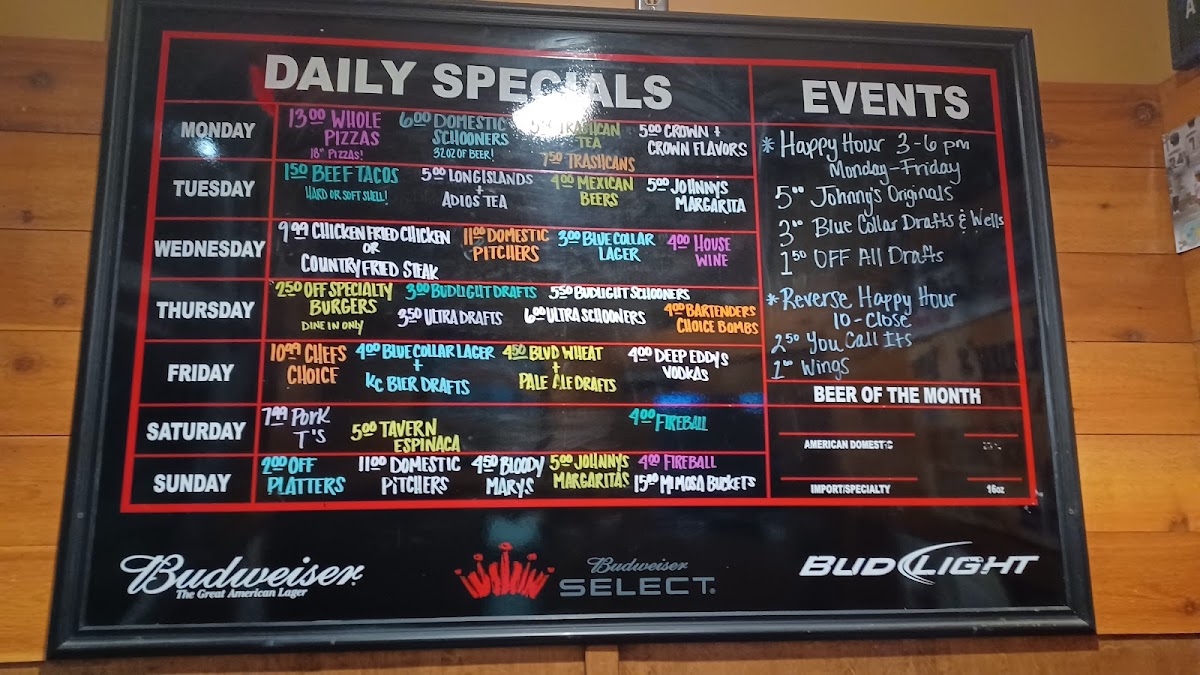 DAILY SPECIALS
MONDAY
13.00 WHOLE
PIZZAS
18" PIZZAS!
6.00 DOMESTIC
SCHOONERS
32 OZ OF BEER!
TRASHCAN
TEA
7.50 TRASHCANS
5.00 CROWN +
CROWN FLAVORS
TUESDAY
1.50 BEEF TACOS
HARD OR SOFT SHELL!
5.00 LONG ISLANDS
+
ADIOS TEA
4.00 MEXICAN
BEERS
5.00 JOHNNYS
MARGARITA
WEDNESDAY
9.99 CHICKEN FRIED CHICKEN
OR
COUNTRY FRIED STEAK
11.00 DOMESTIC
PITCHERS
3.00 BLUE COLLAR
LAGER
4.00 HOUSE
WINE
THURSDAY
2.50 OFF SPECIALTY
BURGERS
DINE IN ONLY
3.00 BUDLIGHT DRAFTS
5.50 BUDLIGHT SCHOONERS
3.50 ULTRA DRAFTS
6.00 ULTRA SCHOONERS
4.00 BARTENDERS
CHOICE BOMBS
FRIDAY
10.99 CHEFS
CHOICE
4.00 BLUE COLLAR LAGER
+
KC BIER DRAFTS
4.50 BLVD WHEAT
+
PALE ALE DRAFTS
4.00 DEEP EDDYS
VODKAS
SATURDAY
7.99 PORK
T'S
5.00 TAVERN
ESPINACA
4.00 FIREBALL
SUNDAY
2.00 OFF
PLATTERS
11.00 DOMESTIC
PITCHERS
4.50 BLOODY
MARYS
5.00 JOHNNYS
MARGARITAS
4.00 FIREBALL
15.00 MIMOSA BUCKETS
EVENTS
* Happy Hour 3-6 pm
Monday-Friday
5.00 Johnny's Originals
3.00 Blue Collar Drafts & Wells
1.50 OFF All Drafts
* Reverse Happy Hour
10-Close
2.50 You Call Its
1.00 Wings
BEER OF THE MONTH
AMERICAN DOMESTIC
IMPORT/SPECIALTY
16oz
Budweiser
The Great American Lager
Budweiser
SELECT.
BUD LIGHT